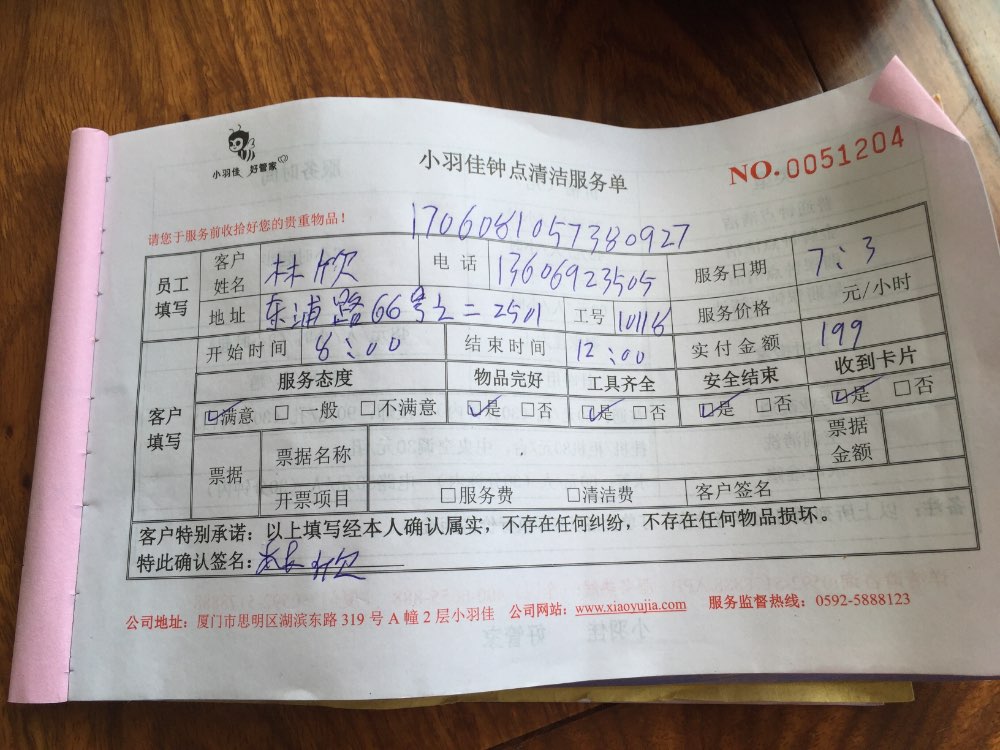 小羽佳 好管家
小羽佳钟点清洁服务单
NO.0051204
请您于服务前收拾好您的贵重物品!
1706081057380927
员工填写 客户姓名 林欣 电话 13606923505 服务日期 7:3
地址 东浦路66号之二2501 工号 10118 服务价格 元/小时
客户填写 开始时间 8:00 结束时间 12:00 实付金额 199
服务态度 物品完好 工具齐全 安全结束 收到卡片
☑满意 □一般 □不满意 ☑是 □否 ☑是 □否 ☑是 □否 ☑是 □否
票据 票据名称 票据金额
开票项目 □服务费 □清洁费 客户签名
客户特别承诺:以上填写经本人确认属实,不存在任何纠纷,不存在任何物品损坏。
特此确认签名:林欣
公司地址:厦门市思明区湖滨东路 319 号 A 幢 2 层小羽佳 公司网站:www.xiaoyujia.com 服务监督热线:0592-5888123